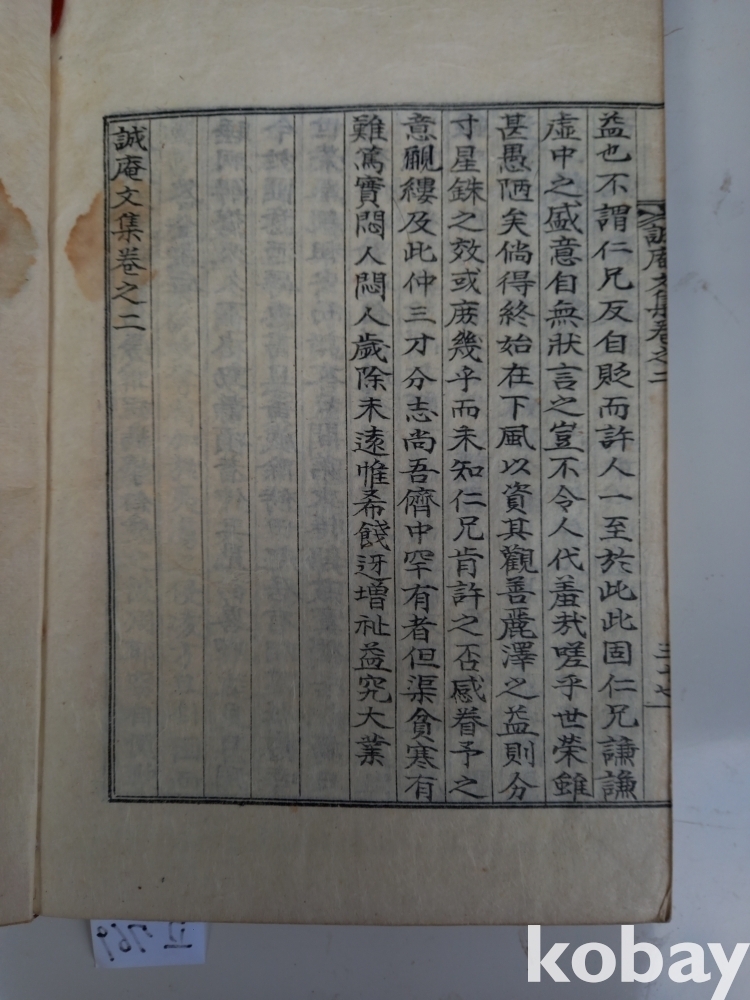 誠庵文集卷之二
益也不謂仁兄反自貶而許人一至於此此固仁兄謙謙
虛中之盛意自無狀言之豈不令人代羞哉嗟乎世榮雖
甚愚陋矣倘得終始在下風以資其觀善麗澤之益則分
寸星銖之效或庶幾乎而未知仁兄肯許之否感眷予之
意覼縷及此仲三才分志尚吾儕中罕有者但渠貧寒有
難爲實悶人悶人歲除未遠惟希餞迓增祉益究大業
誠庵文集卷之二
769
kobay